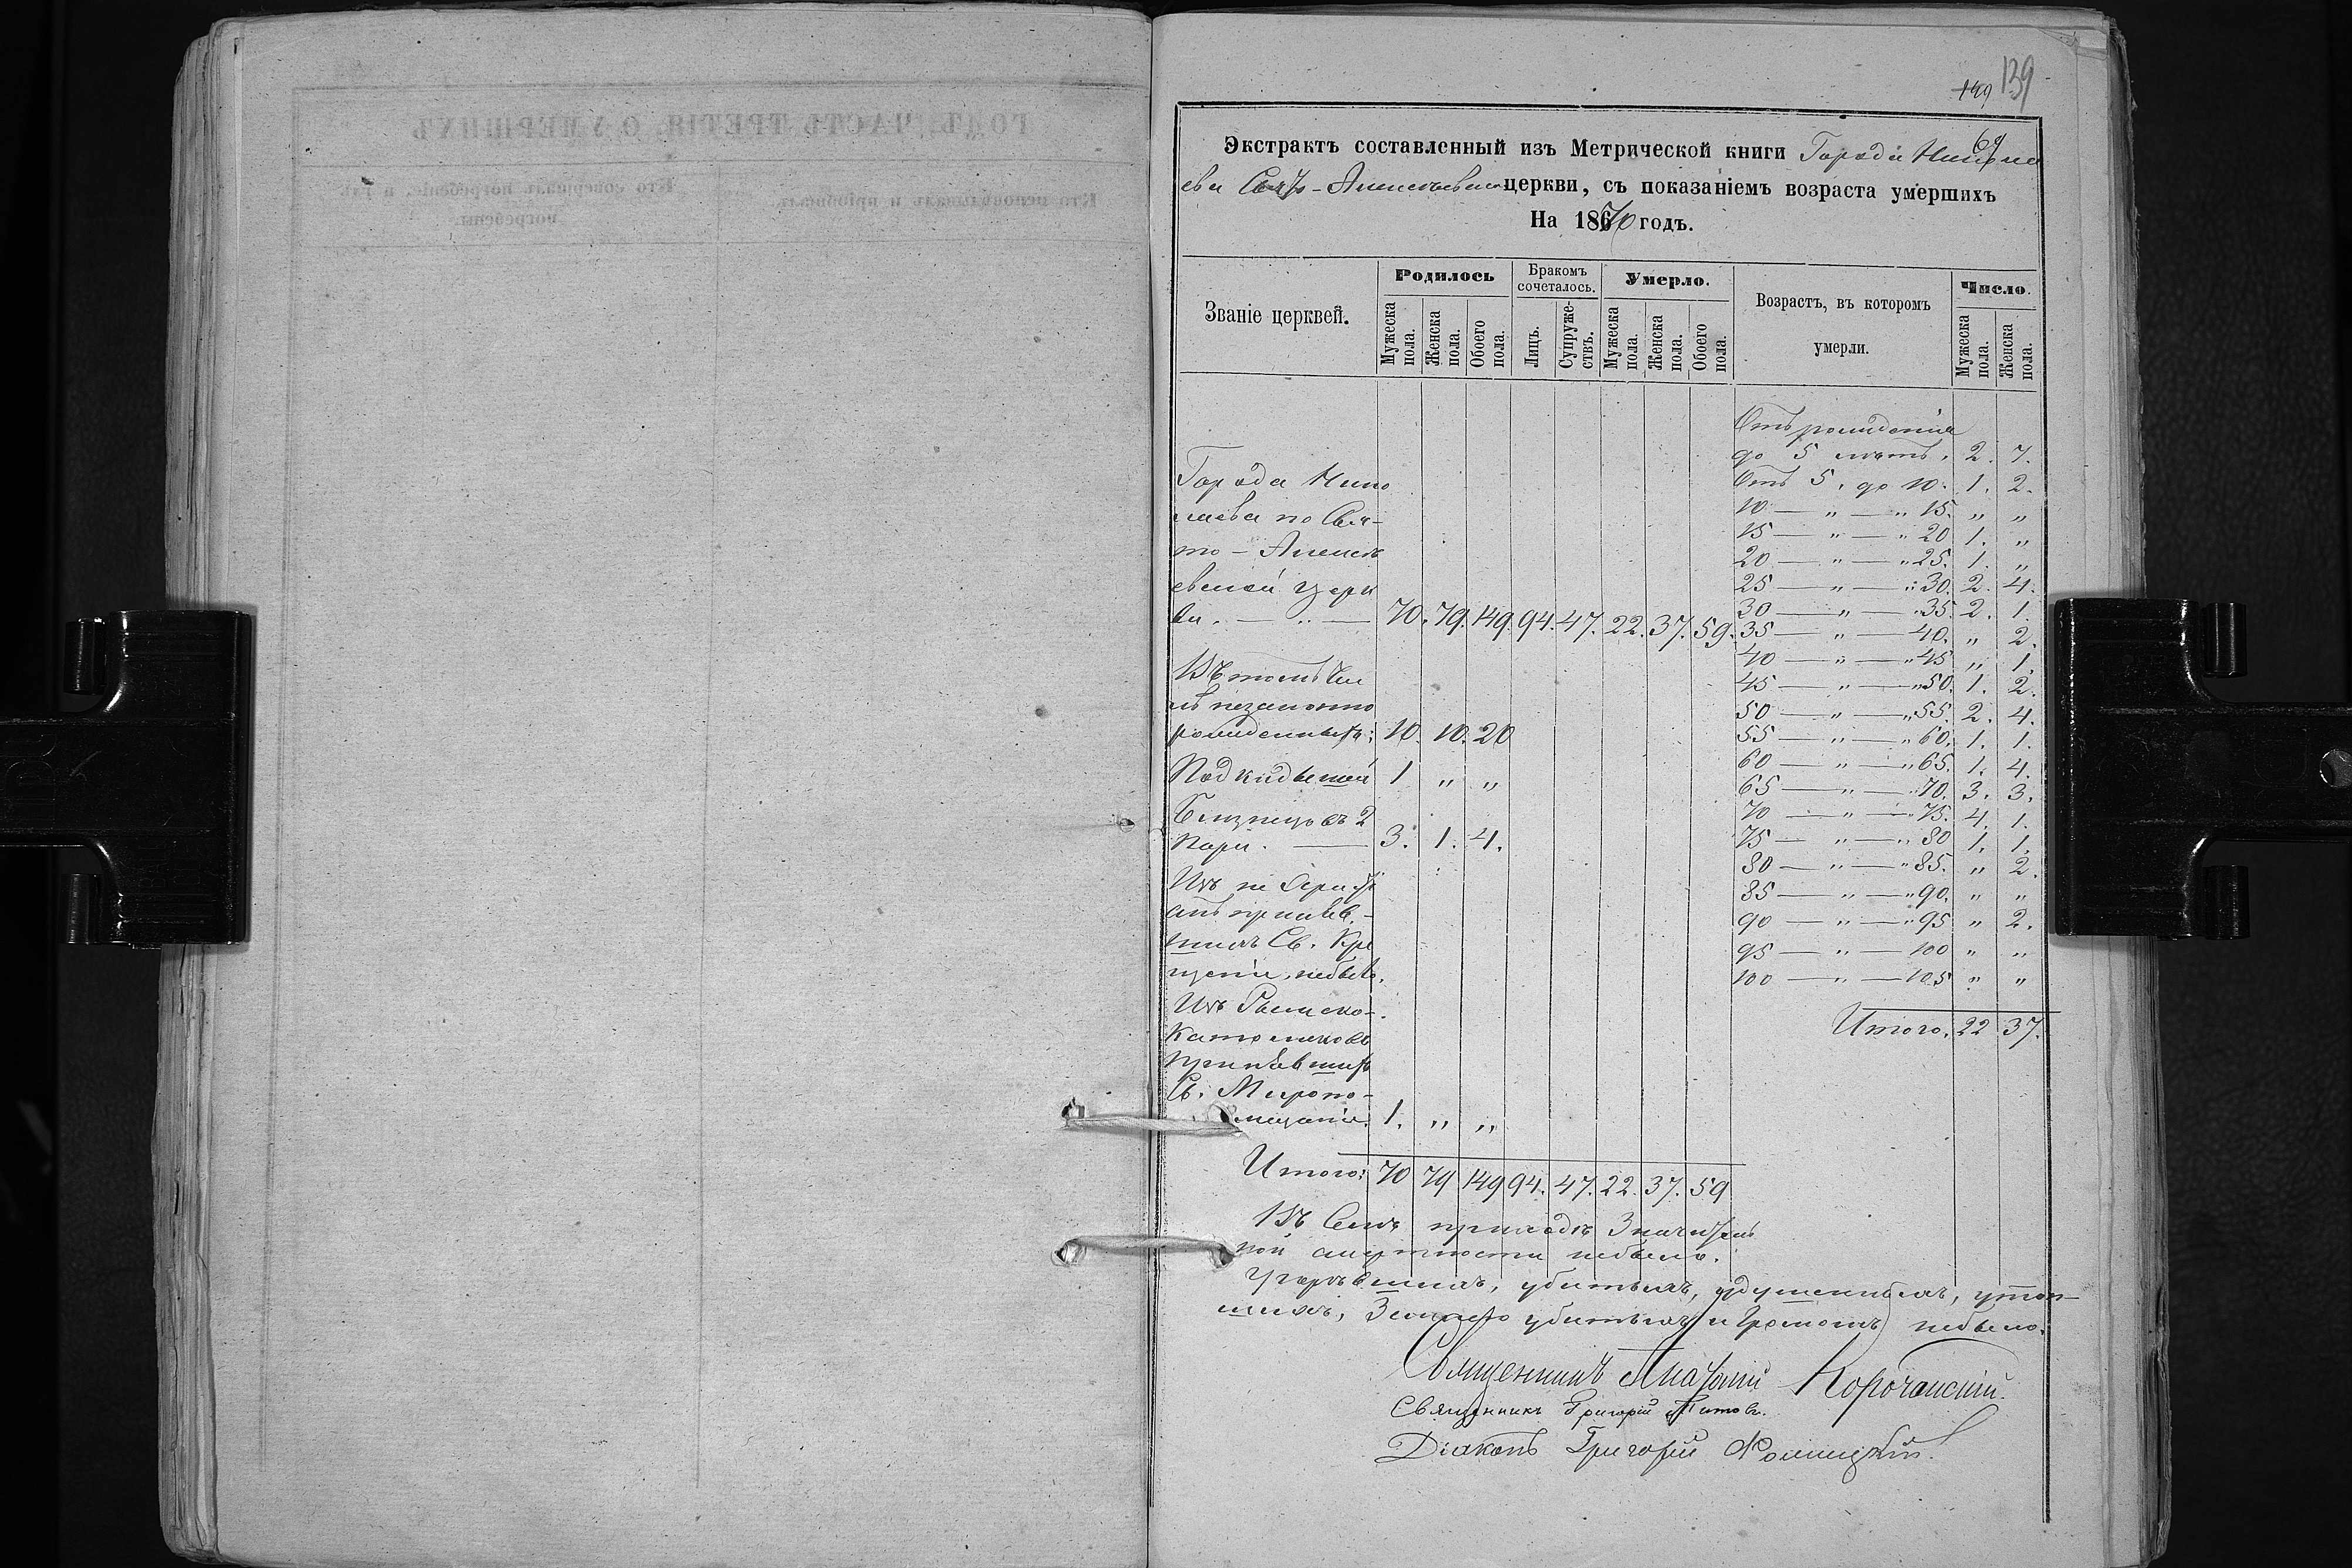 139
149
69
Экстрактъ составленный изъ Метрической книги Города Никола
ева Свято-Алексѣевской церкви, съ показаніемъ возраста умершихъ
На 1870 годъ.
Званіе церквей. Родилось Бракомъ сочеталось. Умерло. Возрастъ, въ которомъ умерли. Число.
Мужеска пола. Женска пола. Обоего пола. Лицъ. Супружествъ. Мужеска пола. Женска пола. Обоего пола. Мужеска пола. Женска пола.
Города Нико
лаева по Свя-
то-Алексѣ
евской Церк
ви. — „ — 70. 79. 149. 94. 47. 22. 37. 59.
Въ томъ чис
лѣ незаконно
рожденныхъ: 10. 10. 20
Подкидышей 1 „ „
Близнецовъ 2
пары. — 3. 1. 4.
Изъ не
принявъ-
шихъ Св. Кре
щеніе, небыло.
Изъ Римско-
Католиковъ
принявшихъ
Св. Миропо-
мазаніе. 1. „ „
Итого: 70 79 149 94. 47. 22. 37. 59
Отъ рожденія
до 5 лѣтъ. 2. 7.
Отъ 5. до 10. 1. 2.
10 — „ — „ 15. „ „
15 — „ — „ 20 1. „
20 — „ — „ 25. 1. „
25 — „ — „ 30. 2. 4.
30 — „ — „ 35. 2. 1.
35 — „ — 40. „ 2.
40 — „ — „ 45 „ 1.
45 — „ — „ 50. 1. 2.
50 — „ — „ 55. 2. 4.
55 — „ — „ 60. 1. 1.
60 — „ — „ 65. 1. 4.
65 — „ — „ 70. 3. 3.
70 — „ — 75. 4. 1.
75 — „ — „ 80 1. 1.
80 — „ — „ 85. „ 2.
85 — „ — „ 90. „ „
90 — „ — „ 95 „ 2.
95 — „ — 100 „ „
100 — „ — 105 „ „
Итого. 22 37.
Въ семъ приходѣ Значитель
ной смертности небыло.
Угорѣвшихъ, убитыхъ, удушенныхъ, утоп-
шихъ, Землею убитыхъ и Громомъ небыло.
Священникъ Анатолій Корочанскій.
Священникъ Григорій Титовъ.
Діаконъ Григорій
ГОДЪ, ЧАСТЬ ТРЕТІЯ, О УМЕРШИХЪ
Кто исповѣдывалъ и пріобщалъ. Кто совершалъ погребеніе, и гдѣ
погребены.